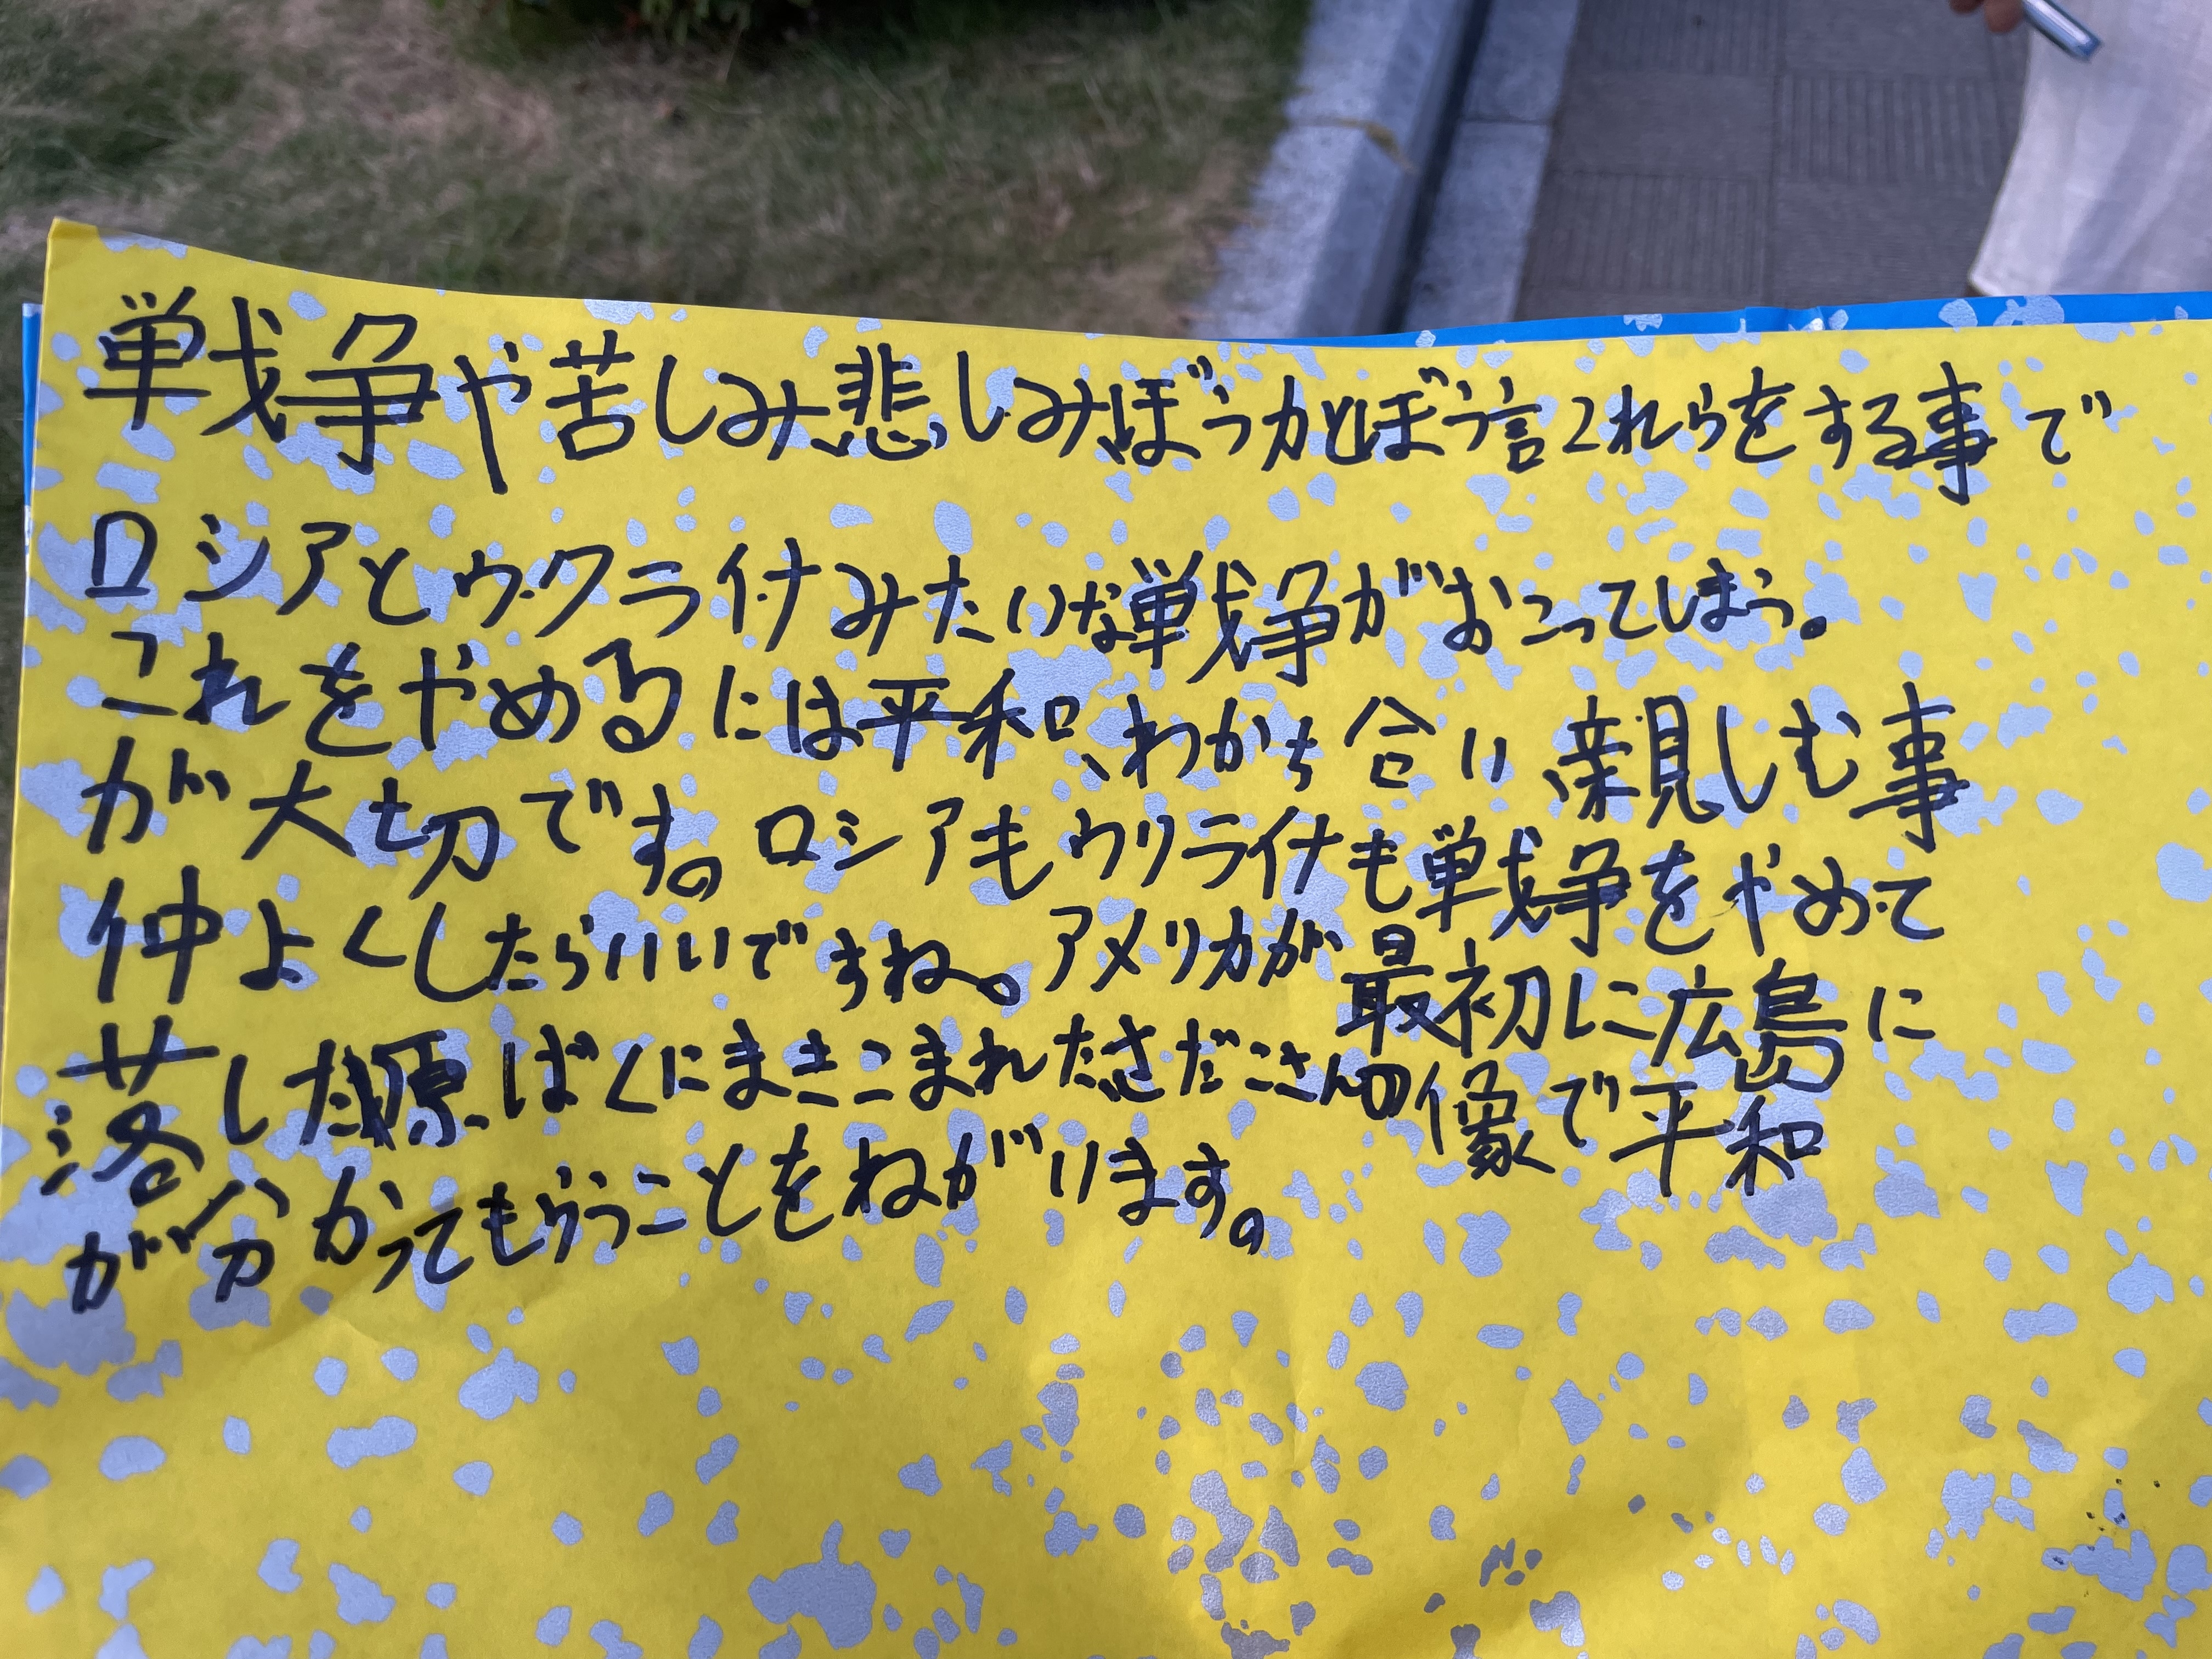 戦争や苦しみ、悲しみ、ぼう力とぼう言これらをする事で
ロシアとウクライナみたいな戦争がおこってしまう。
これをやめるには平和、わかち合い、親しむ事
が大切です。ロシアもウクライナも戦争をやめて
仲よくしたらいいですね。アメリカが最初に広島に
落した原ばくにまきこまれたさだこさんの像で平和
が分かってもらうことをねがいます。